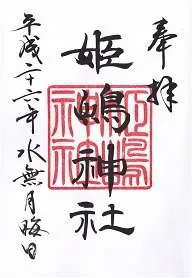 奉拝
姫嶋神社
平成二十六年水無月晦日